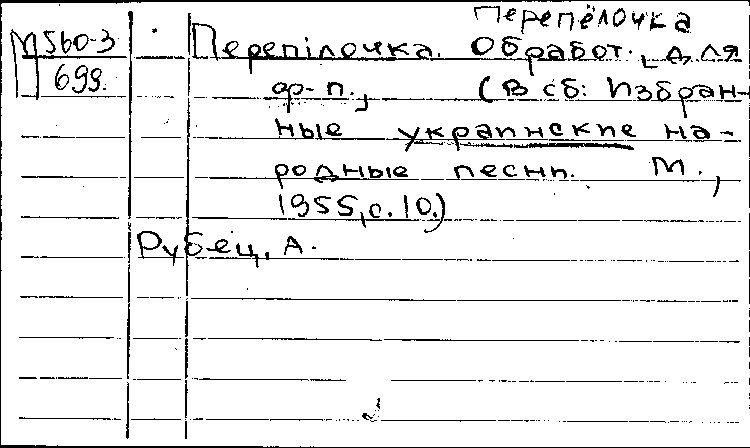 Перепёлочка
М560-3 Перепілочка. Обработ., для
699. ф-п., (В сб: Избран-
ные украинские на-
родные песни. М.,
1955, с. 10.)
Рубец, А.